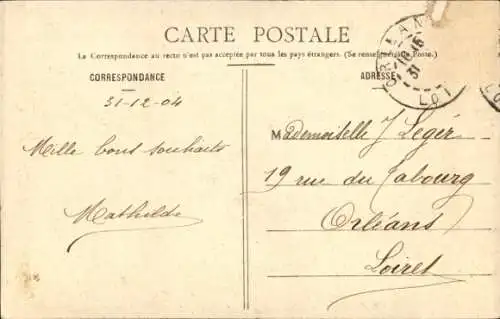 CARTE POSTALE
La Correspondance au recto n'est pas acceptée par tous les pays étrangers. (Se renseigner à la Poste.)
CORRESPONDANCE
31-12-04
Mille bons souhaits
Mathilde
ADRESSE
Mademoiselle J Leger
19 rue du Cabourg
Orléans
Loiret
ORLÉANS
31
LOI